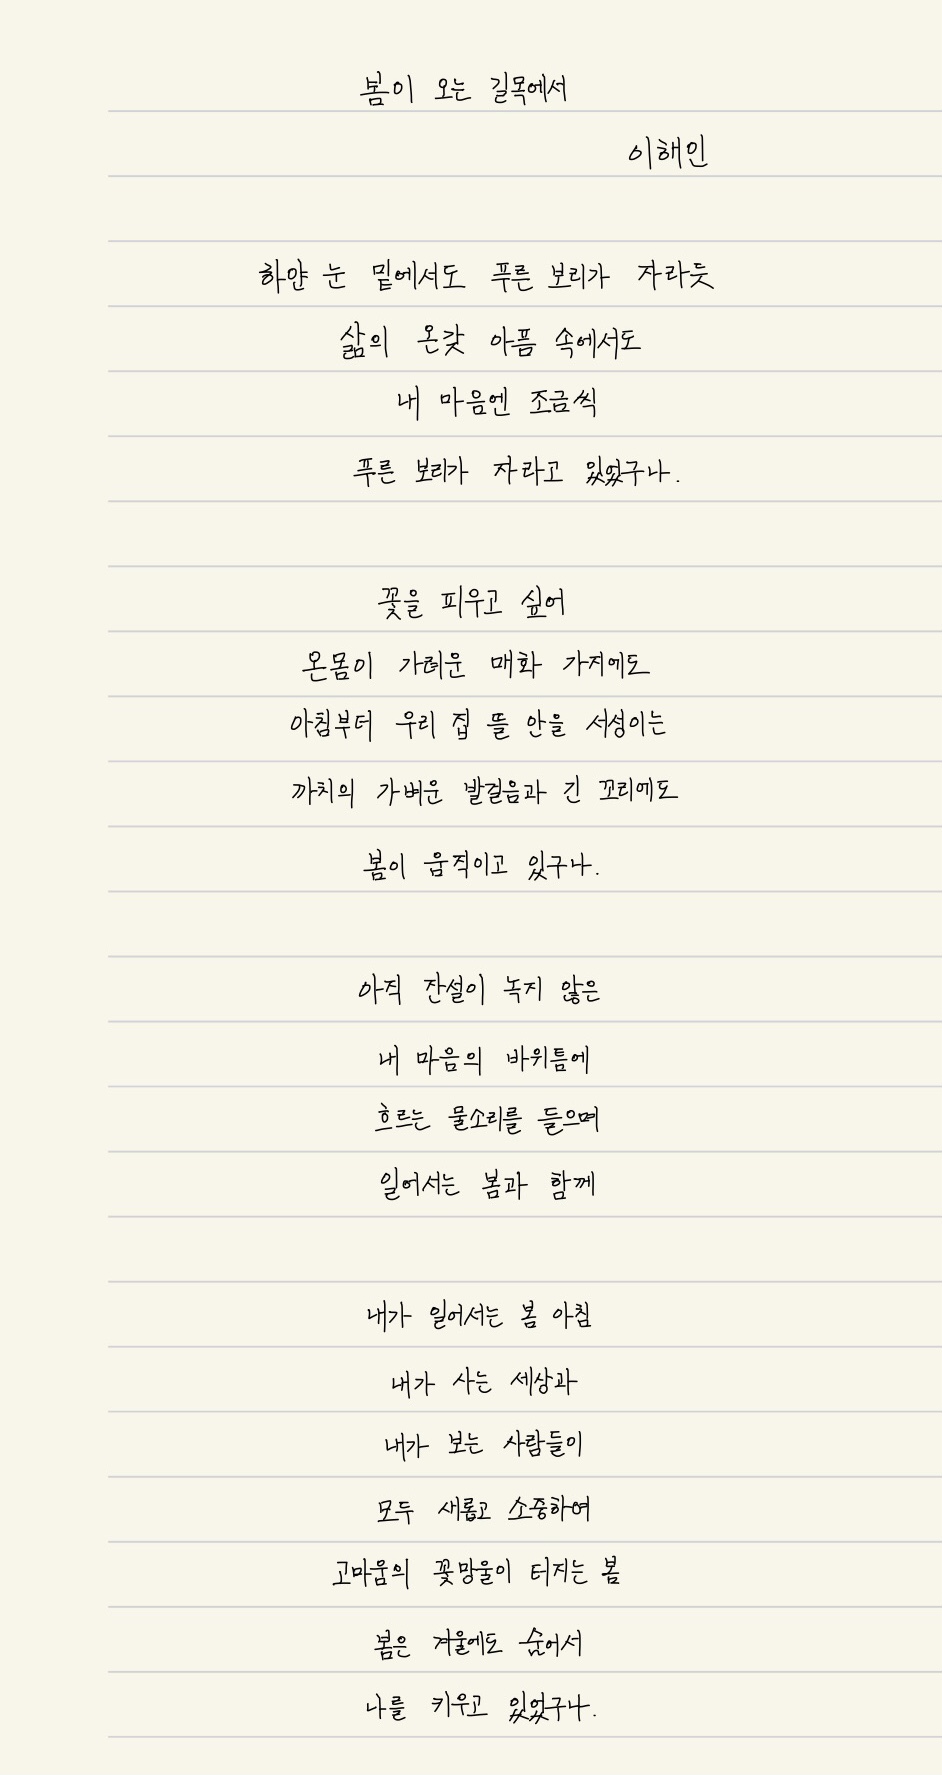 봄이 오는 길목에서
이해인
하얀 눈 밑에서도 푸른 보리가 자라듯
삶의 온갖 아픔 속에서도
내 마음엔 조금씩
푸른 보리가 자라고 있었구나.
꽃을 피우고 싶어
온몸이 가려운 매화 가지에도
아침부터 우리 집 뜰 안을 서성이는
까치의 가벼운 발걸음과 긴 꼬리에도
봄이 움직이고 있구나.
아직 잔설이 녹지 않은
내 마음의 바위틈에
흐르는 물소리를 들으며
일어서는 봄과 함께
내가 일어서는 봄 아침
내가 사는 세상과
내가 보는 사람들이
모두 새롭고 소중하여
고마움의 꽃망울이 터지는 봄
봄은 겨울에도 숨어서
나를 키우고 있었구나.